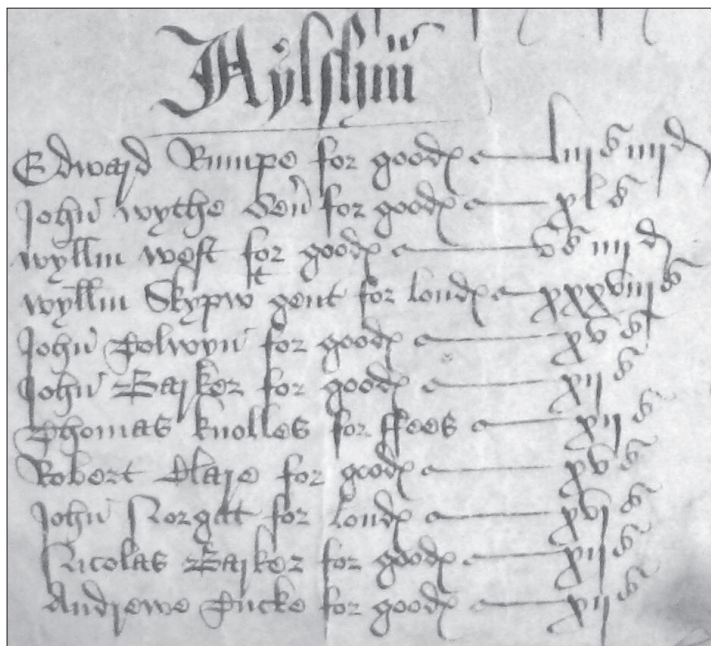 Aylshm
Edward Rumpe for good℮ liijs iiijd
John wythe Senr for good℮ xls
wyllm west for good℮ vs iiijd
wyllm Skypwt gent for lond℮ xxxviijs
John for good℮ xvs
John Barker for good℮ xijs
Thomas knolles for ffees xijs
Robert for good℮ xvs
John Norgatt for lond℮ xvjs
Nicolas Barker for good℮ xijs
Andrewe for good℮ xijs